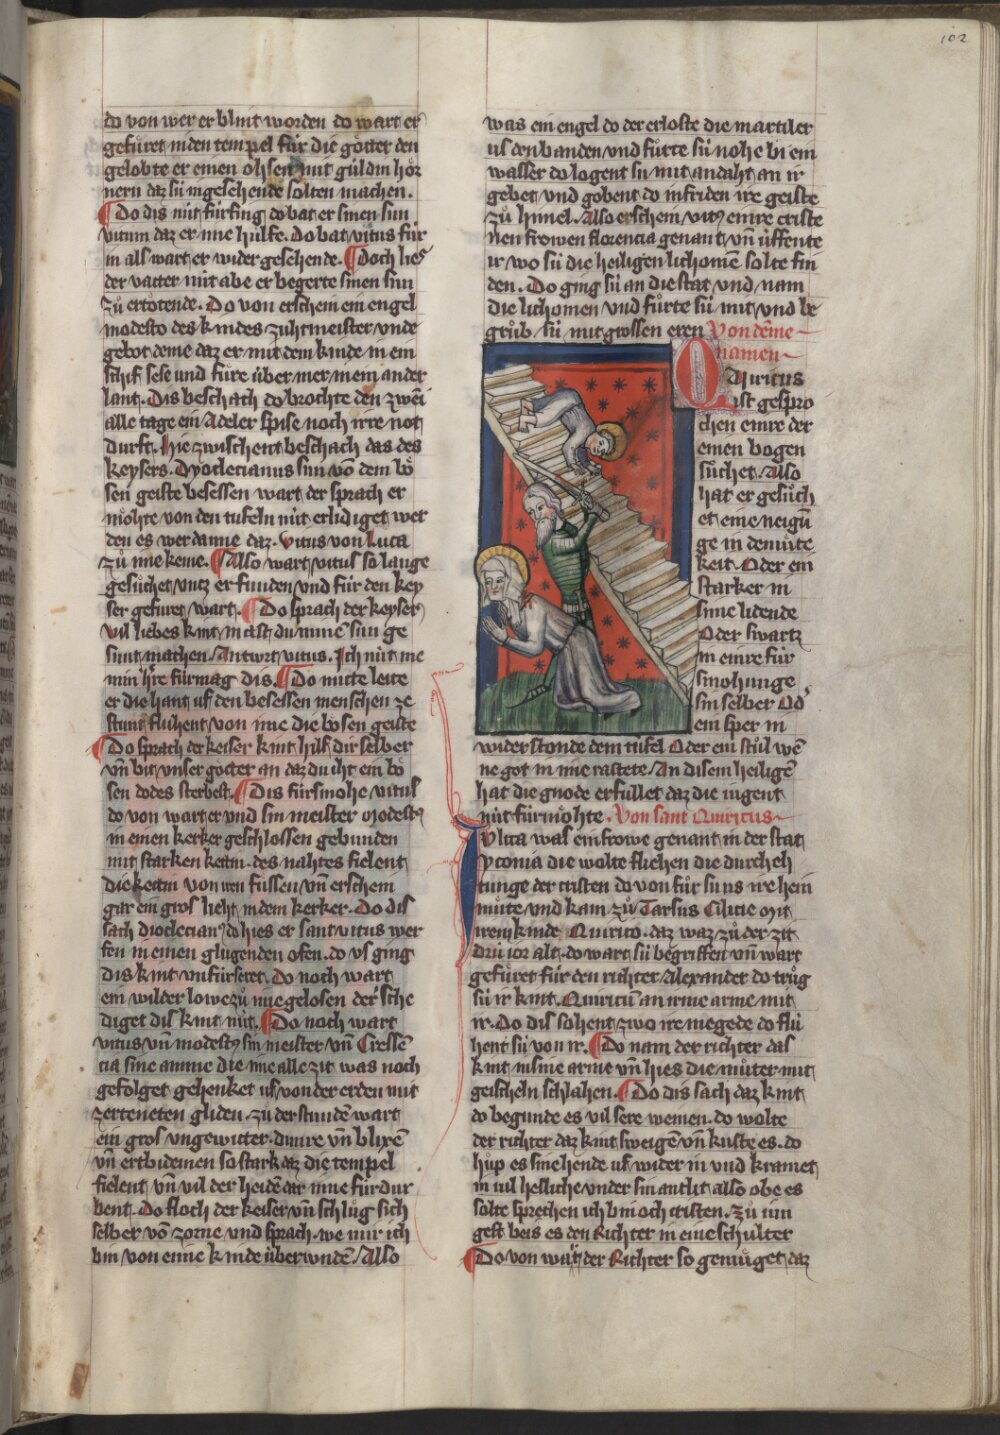 102
do von wer er blint worden do wart er
gefüret in den tempel für die götter den
gelobte er einen ohsen mit güldin hör
nern daz sü in gesehende solten machen.
Do dis nüt fürfing do bat er sinen sun
vitum daz er ime hülfe. Do bat vitus für
in als wart er wider gesehende. Doch lies
der vatter nüt abe er begerte sinen sun
zů ertötende. Do von erschein ein engel
modesto des kindes zuhtmeister vnde
gebot deme daz er mit dem kinde in ein
schif sese und füre über mer in ein ander
lant. Dis beschach do brochte den zwein
alle tage ein Adeler spise noch irre not
durft. Hie zwischent beschach das des
keysers. Dyoclecianus sun vō dem bö
sen geiste besessen wart der sprach er
möhte von den tüfeln nüt erlidiget wer
den es wer danne daz. Vitus von Luca
zů ime keme. Also wart vitus so lange
gesůchet vntz er funden vnd für den key
ser gefüret wart. Do sprach der keyser
vil liebes kint maht du minē sun ge
sunt machen. Antwrt vitus. Ich nüt me
min h're fürmag dis. Do mitte leite
er die hant uf den besessen menschen ze
stunt fluhent von ime die bösen geiste
Do sprach der keiser kint hilf dir selber
vn̄ bit vnser götter an daz du iht ein bö
sen dodes sterbest. Dis fürsmohe vitus
do von wart er vnd sin meister modest9
in einen kerker geschlossen gebunden
mit starken kettin. des nahtes fielent
die kettin von iren füssen vn̄ erschein
gar ein gros lieht in dem kerker. Do dis
sach dioclecian9 do hies er sant vitus wer
fen in einen glügenden ofen. do vs ging
dis kint vnfürseret. Do noch wart
ein wilder löwe zů ime gelosen der sche
diget dis kint nüt. Do noch wart
vitus vn̄ modest9 sin meister vn̄ Cressē
cia sine amme die ime alle zit was noch
gefolget gehenket uf von der erden mit
zerteneten gliden. zů der stundē wart
ein gros vngewitter. dunre vn̄ blixē
vn̄ ertbidemen so stark daz die tempel
fielent vn̄ vil der heidē dar inne fürdur
bent. Do floch der keiser vn̄ schlůg sich
selber vō zorne vnd sprach. we mir ich
bin von eime kinde überwndē. Also
was ein engel do der erloste die martiler
us den banden vnd fürte sü nohe bi ein
wasser do logent sü mit andaht an ir
gebet vnd gobent do in friden ire geiste
zů himel. Also erschein vit9 einre criste
nen frowen florencia genant vn̄ üffente
ir wo sü die heiligen lichomē solte fin
den. Do ging sü an die stat vnd nam
die lichomen vnd fůrte sü mit vnd be
grůb sü mit grossen eren Von dēme
namen
Quiricus
ist gespro
chen einre der
einen bogen
sůchet. Also
hat er gesůch
et eine neigū
ge in demůte
keit. Oder ein
starker in
sime lidende
Oder swartz
in einre für
smohunge
sin selber Od'
ein sper in
widerstonde dem tüfel Oder ein stůl wē
ne got in ime rastete. An disem heiligē
hat die gnode erfüllet daz die iugent
nüt fürmöhte. Von sant Quiricus
Iulita was ein frowe genant in der stat
yconia die wolte fliehen die durch eh
tunge der cristen do von fůr sü us ire hein
můte vnd kam zů Tarsus Cilicie mit
irem kinde Quirico. daz waz zů der zit
drü ior alt. do wart sü begriffen vn̄ wart
gefüret für den richter Alexander do trůg
sü ir kint. Quiricū an irme arme mit
ir. Do dis sohent zwo ire megede do flu
hent sü von ir. Do nam der richter das
kint in sine arme vn̄ hies die můter mit
geischeln schlahen. Do dis sach daz kint
do begunde es vil sere weinen. do wolte
der richter daz kint sweigē vn̄ kuste es. do
hůp es sine hende uf wider in vnd kramet
in vil hesliche vnder sin antlit also obe es
solte sprechen ich bin och cristen. Zů iun
gest beis es den Richter in eine schulter
Do von wart der Richter so gemůget daz